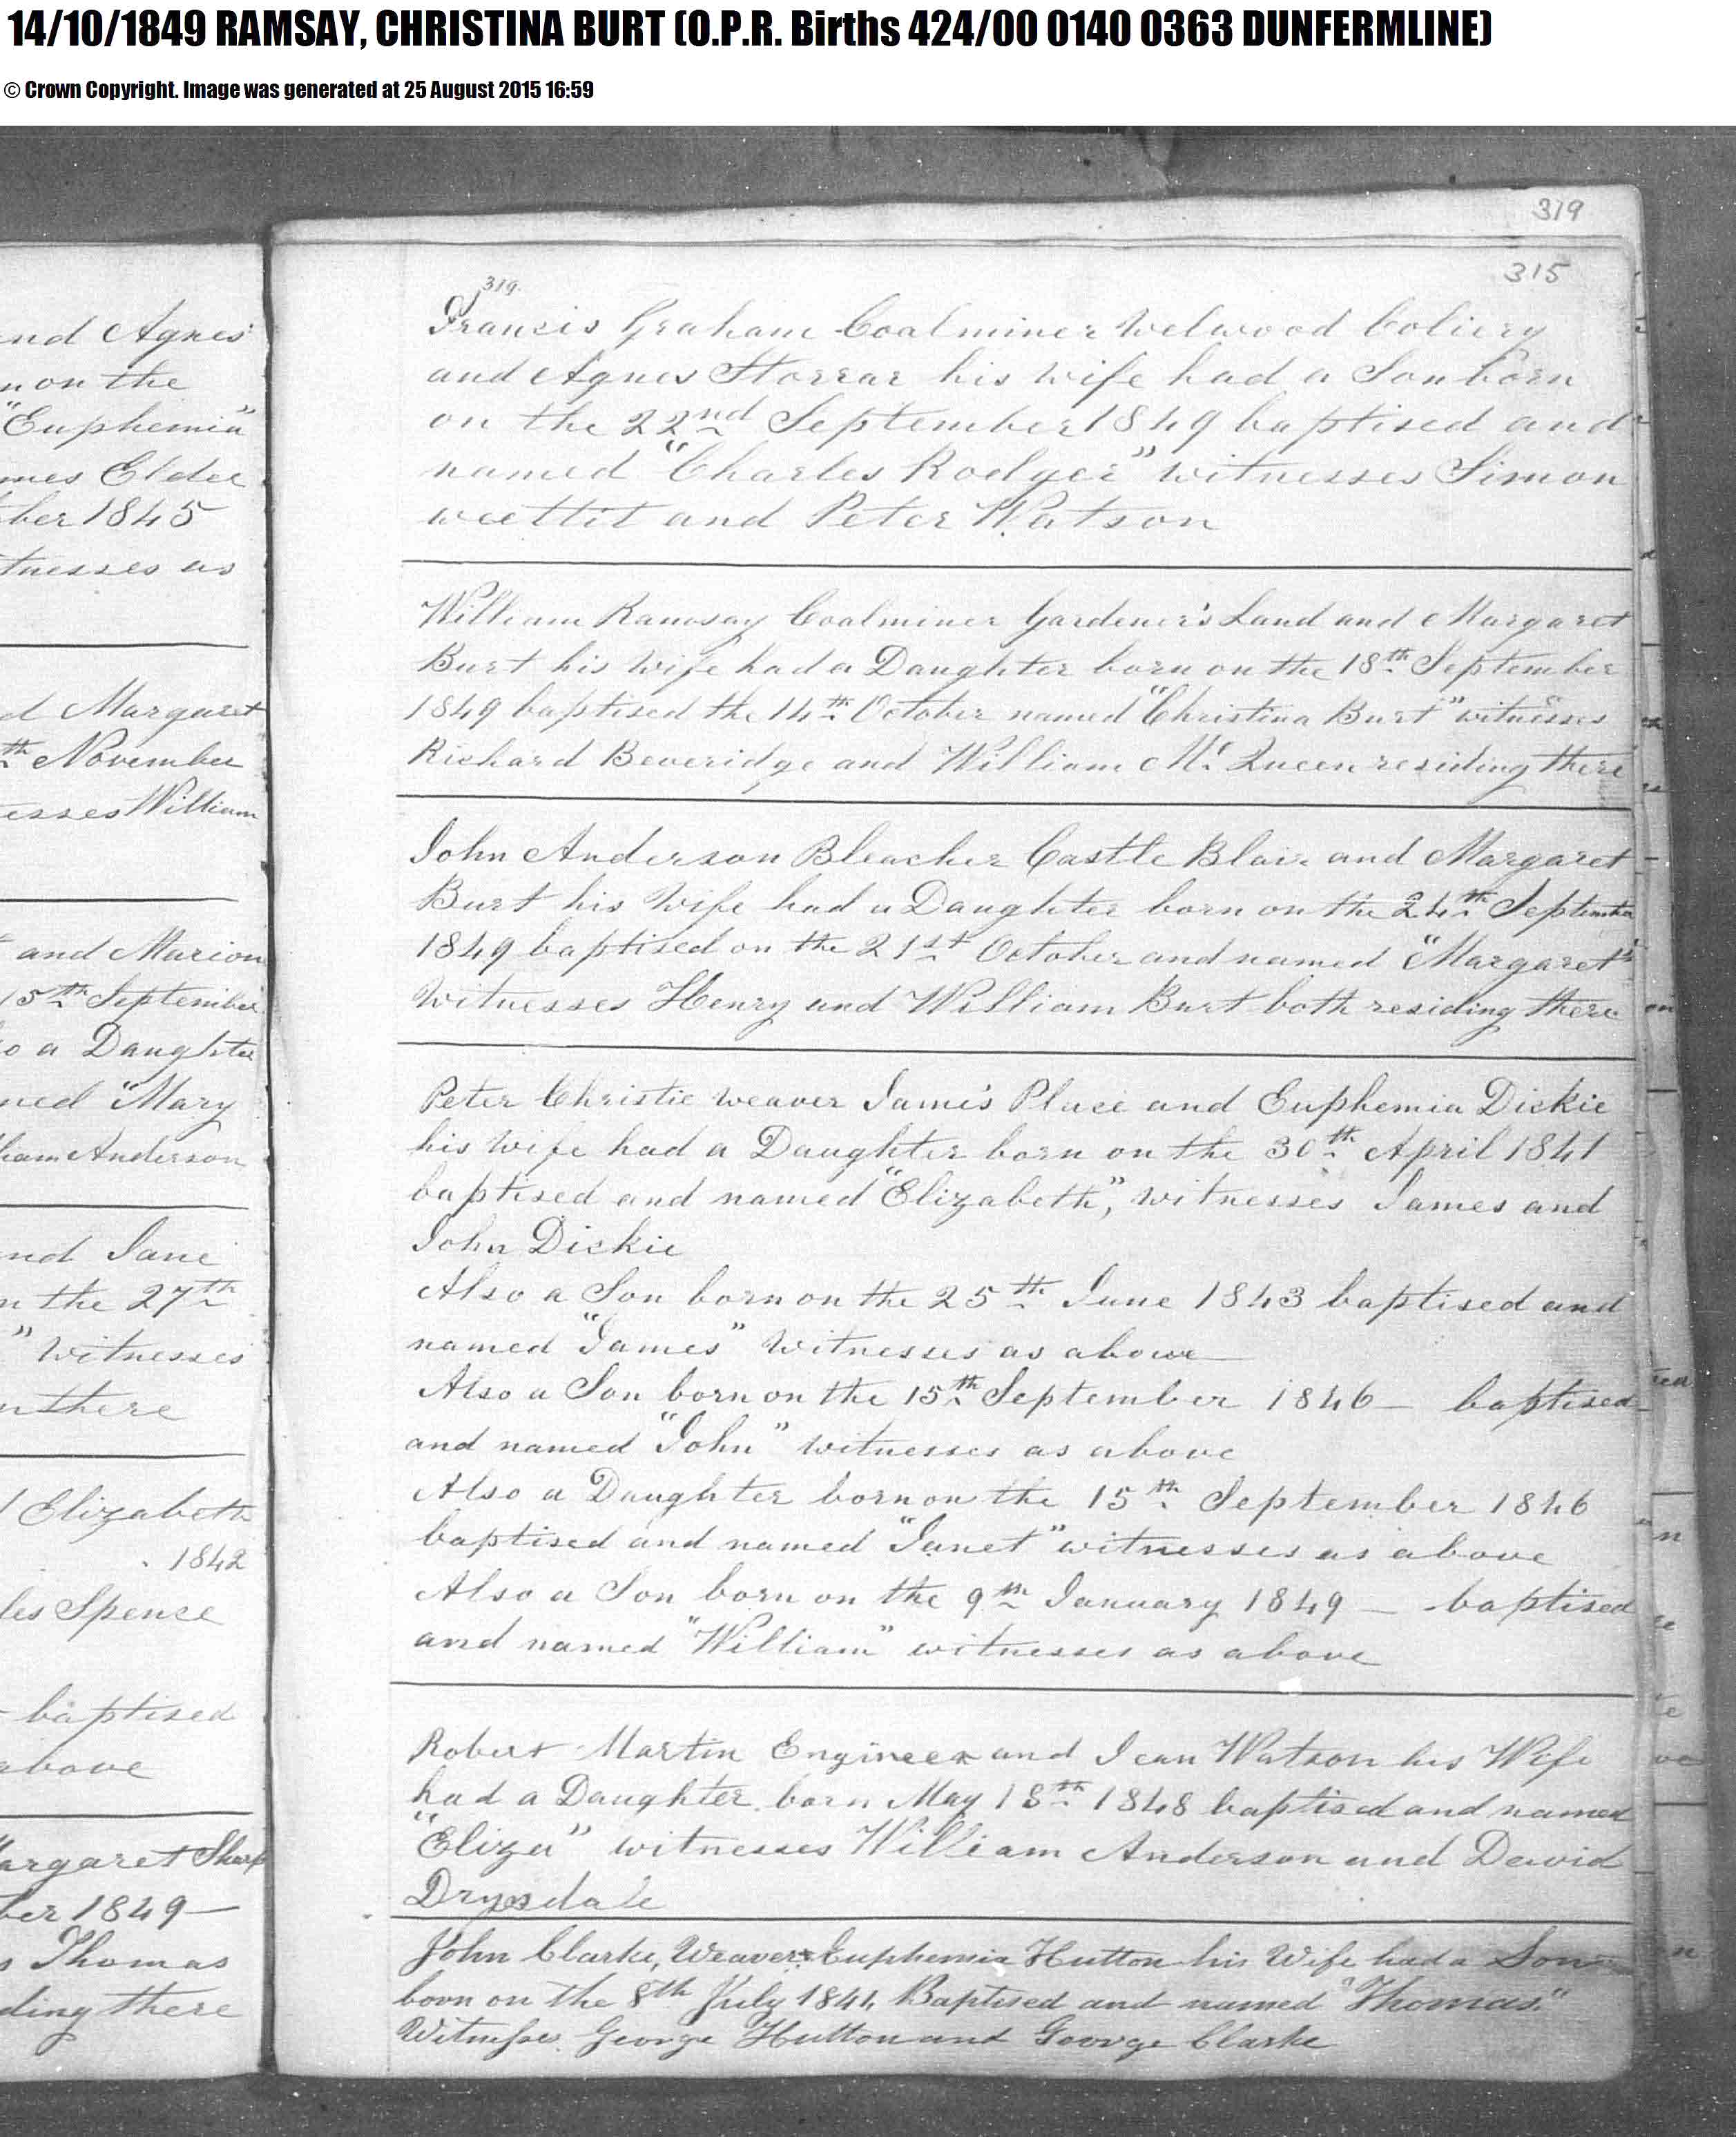 14/10/1849 RAMSAY, CHRISTINA BURT (O.P.R. Births 424/00 0140 0363 DUNFERMLINE)
© Crown Copyright. Image was generated at 25 August 2015 16:59
and Agnes
n on the
"Euphemia"
mes Elder
ber 1845
tnesses as
d Margaret
th November
esses William
and Marion
15th September
o a Daughter
ned "Mary
ham Anderson
nd Jane
n the 27th
" Witnesses
n there
Elizabeth
1842
les Spence
baptised
above
argaret Sharp
ber 1849
s Thomas
ding there
319
315
319
Francis Graham Coalminer Welwood Coliery
and Agnes Storrar his wife had a Son born
on the 22nd September 1849 baptised and
named "Charles Rodger" witnesses Simon
and Peter Watson
William Ramsay Coalminer Gardener's Land and Margaret
Burt his Wife had a Daughter born on the 18th September
1849 baptised the 14th October named "Christina Burt" witnesses
Richard Beveridge and William Mc Queen residing there
John Anderson Bleacher Castle Blair and Margaret
Burt his Wife had a Daughter born on the 24th September
1849 baptised on the 21st October and named "Margaret"
Witnesses Henry and William Burt both residing there
Peter Christie Weaver James Place and Euphemia Dickie
his Wife had a Daughter born on the 30th April 1841
baptised and named "Elizabeth", witnesses James and
John Dickie
Also a Son born on the 25th June 1843 baptised and
named "James" Witnesses as above
Also a Son born on the 15th September 1846 — baptised
and named "John" witnesses as above
Also a Daughter born on the 15th September 1846
baptised and named "Janet" witnesses as above
Also a Son born on the 9th January 1849 — baptised
and named "William" witnesses as above
Robert Martin Engineer and Jean Watson his Wife
had a Daughter born May 18th 1848 baptised and named
"Eliza" witnesses William Anderson and David
Drysdale
John Clarke, Weaver & Euphemia Hutton his Wife had a Son
born on the 8th July 1844 Baptised and named "Thomas."
Witnesse George Hutton and George Clarke